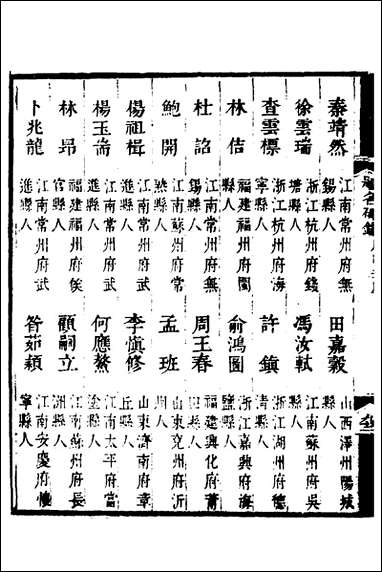 題名碑錄
秦靖然
江南常州府無
錫縣人
田嘉穀
山西澤州陽城
縣人
徐雲瑞
浙江杭州府錢
塘縣人
馮汝軾
江南蘇州府吳
縣人
查雲標
浙江杭州府海
寧縣人
許鎮
浙江湖州府德
清縣人
林佶
福建福州府閩
縣人
俞鴻圖
浙江嘉興府海
鹽縣人
杜詔
江南常州府無
錫縣人
周王春
福建興化府莆
縣人
鮑開
江南蘇州府常
熟縣人
孟班
山東兗州府沂
州人
楊祖楫
江南常州府武
進縣人
李慎修
山東濟南府章
丘縣人
楊玉崙
江南常州府武
進縣人
何應鰲
江南太平府當
塗縣人
林昂
福建福州府侯
官縣人
顧嗣立
江南蘇州府長
洲縣人
卜兆龍
江南常州府武
進縣人
昝茹穎
江南安慶府懷
寧縣人